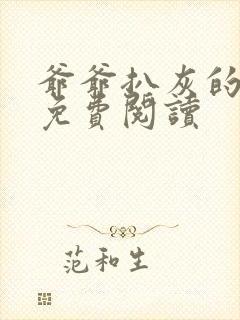 爺爺扒灰的
免費閱讀
范和生